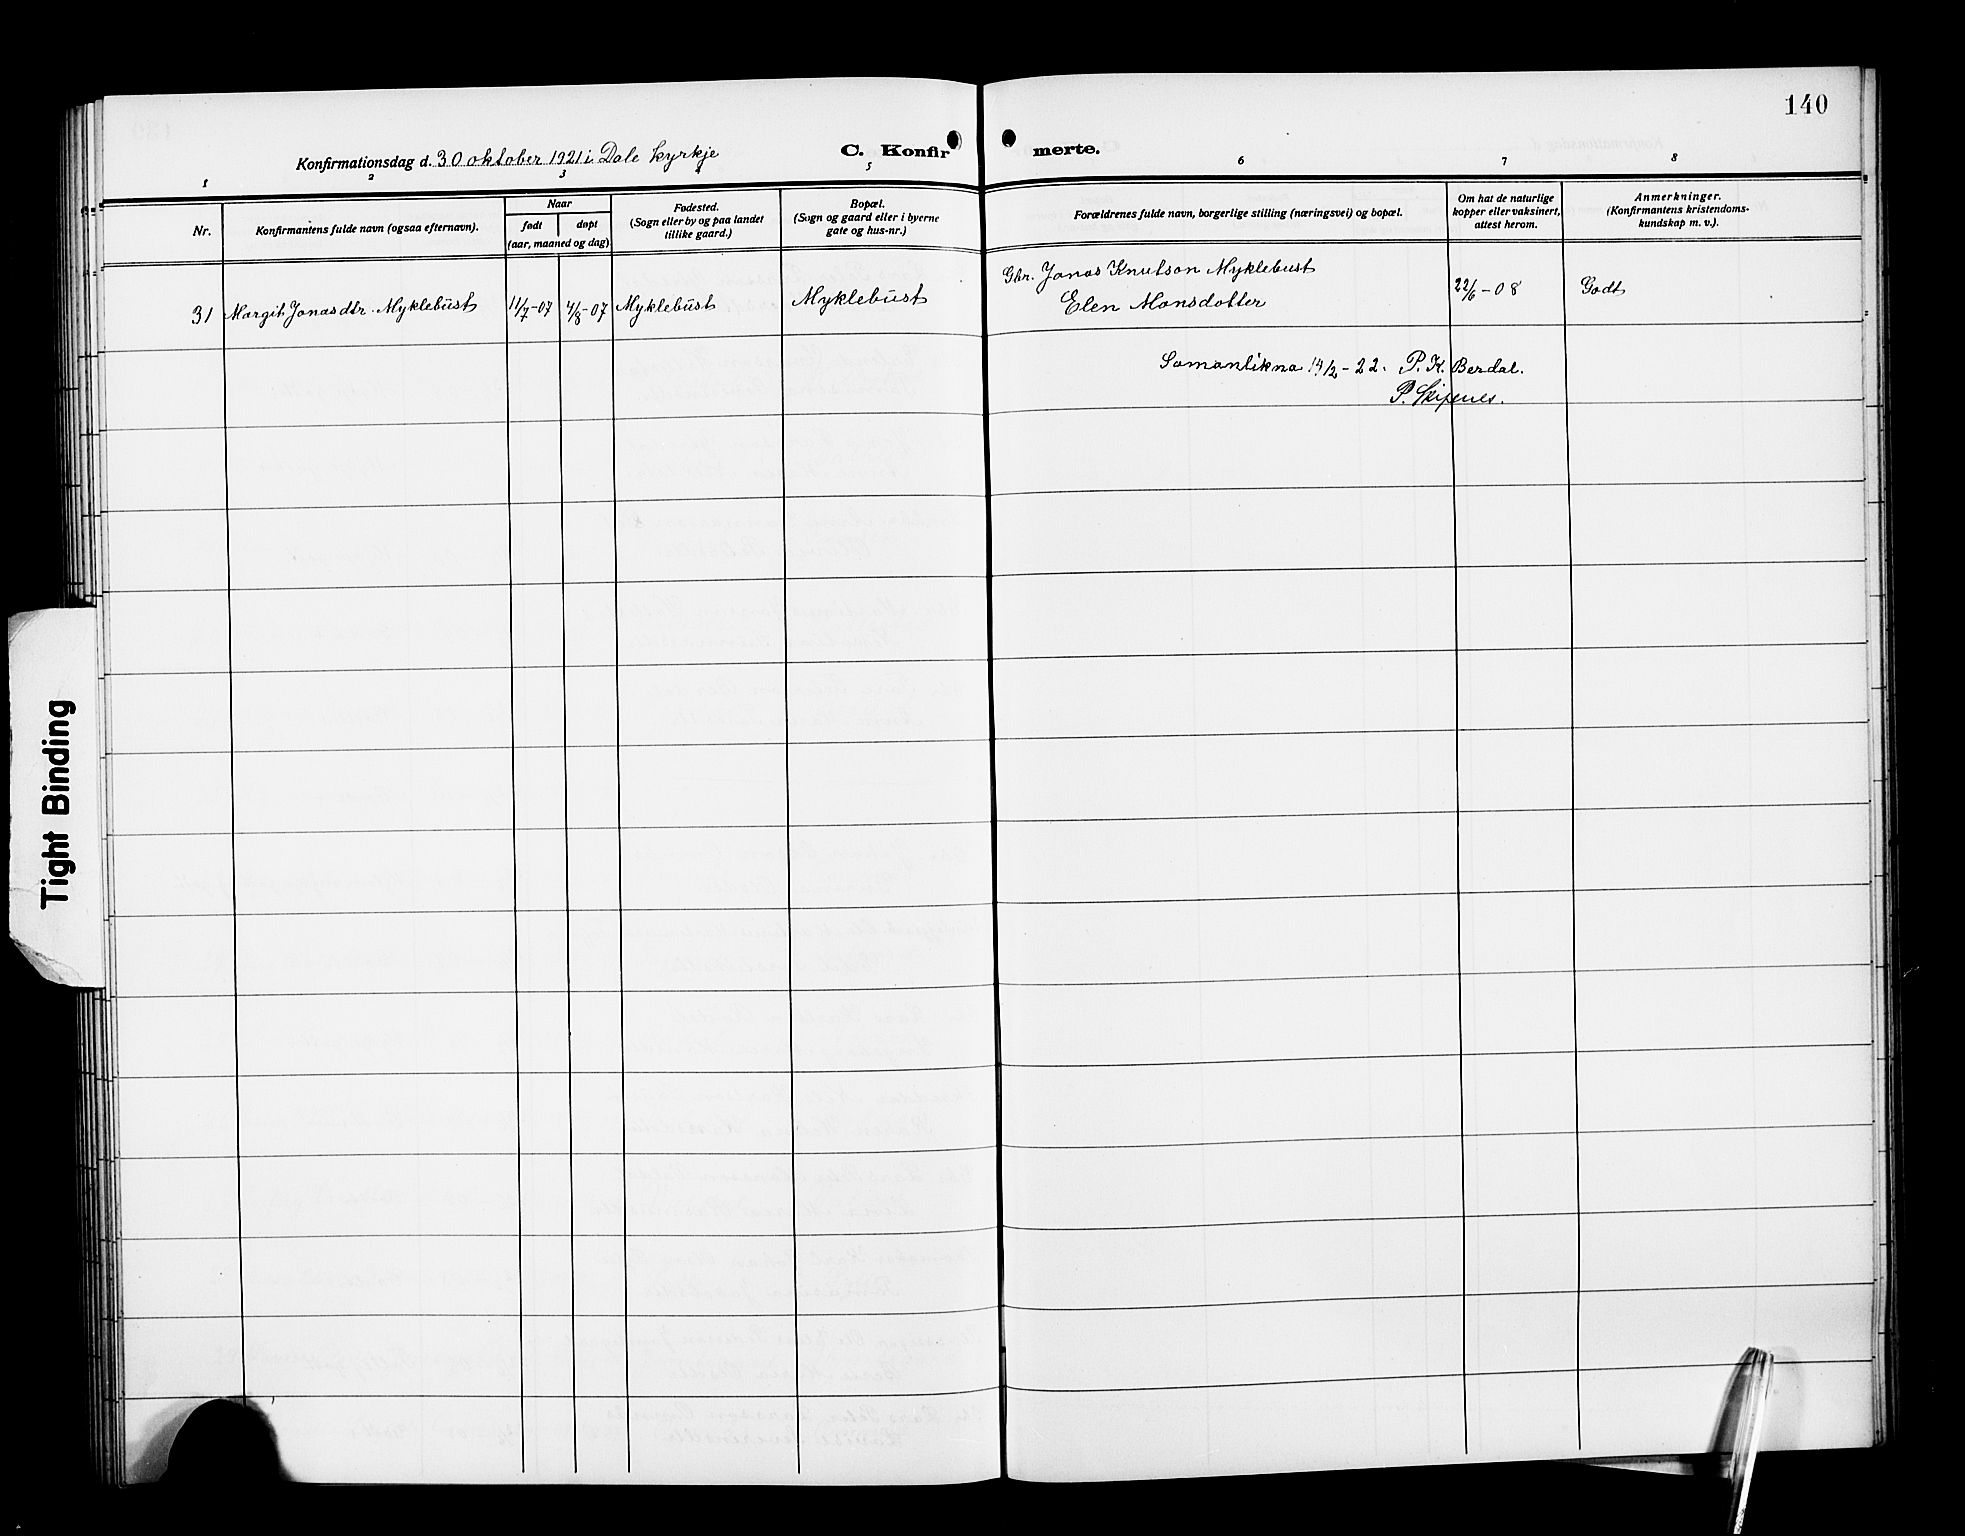 140
Konfirmationsdag d. 30 oktober 1921 i Dale kyrkje
C. Konfirmerte.
1 2 3 4 5 6 7 8
Nr.
Konfirmantens fulde navn (ogsaa efternavn).
Naar
født
døpt
(aar, maaned og dag)
Fødested.
(Sogn eller by og paa landet
tillike gaard.)
Bopæl.
(Sogn og gaard eller i byerne
gate og hus-nr.)
Forældrenes fulde navn, borgerlige stilling (næringsvei) og bopæl.
Om hat de naturlige
kopper eller vaksinert,
attest herom.
Anmerkninger.
(Konfirmantens kristendoms-
kundskap m. v.).
31 Margit Jonasdtr. Myklebust 11/7-07 4/8-07 Myklebust Myklebust
Gbr. Jonas Knutson Myklebust
Elen Monsdotter
22/6-08 Godt
Samanlikna 14/2-22. P. K. Berdal.
P. Skipenes.
Tight Binding